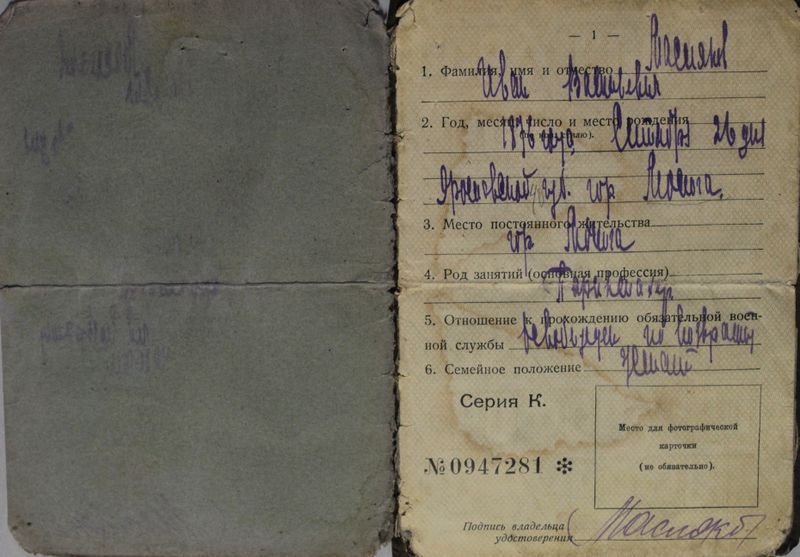 — 1 —
1. Фамилия, имя и отчество Масляков
Иван Васильевич
2. Год, месяц, число и место рождения
1876 года, Сентября 26 дня
Ярославской губ. гор. Молога.
3. Место постоянного жительства
гор Молога
4. Род занятий (основная профессия)
Парикмахер
5. Отношение к прохождению обязательной воен-
ной службы освобожден по возрасту
6. Семейное положение женат
Серия К.
Место для фотографической
карточки
(не обязательно).
№ 0947281 ✻
Подпись владельца
удостоверения